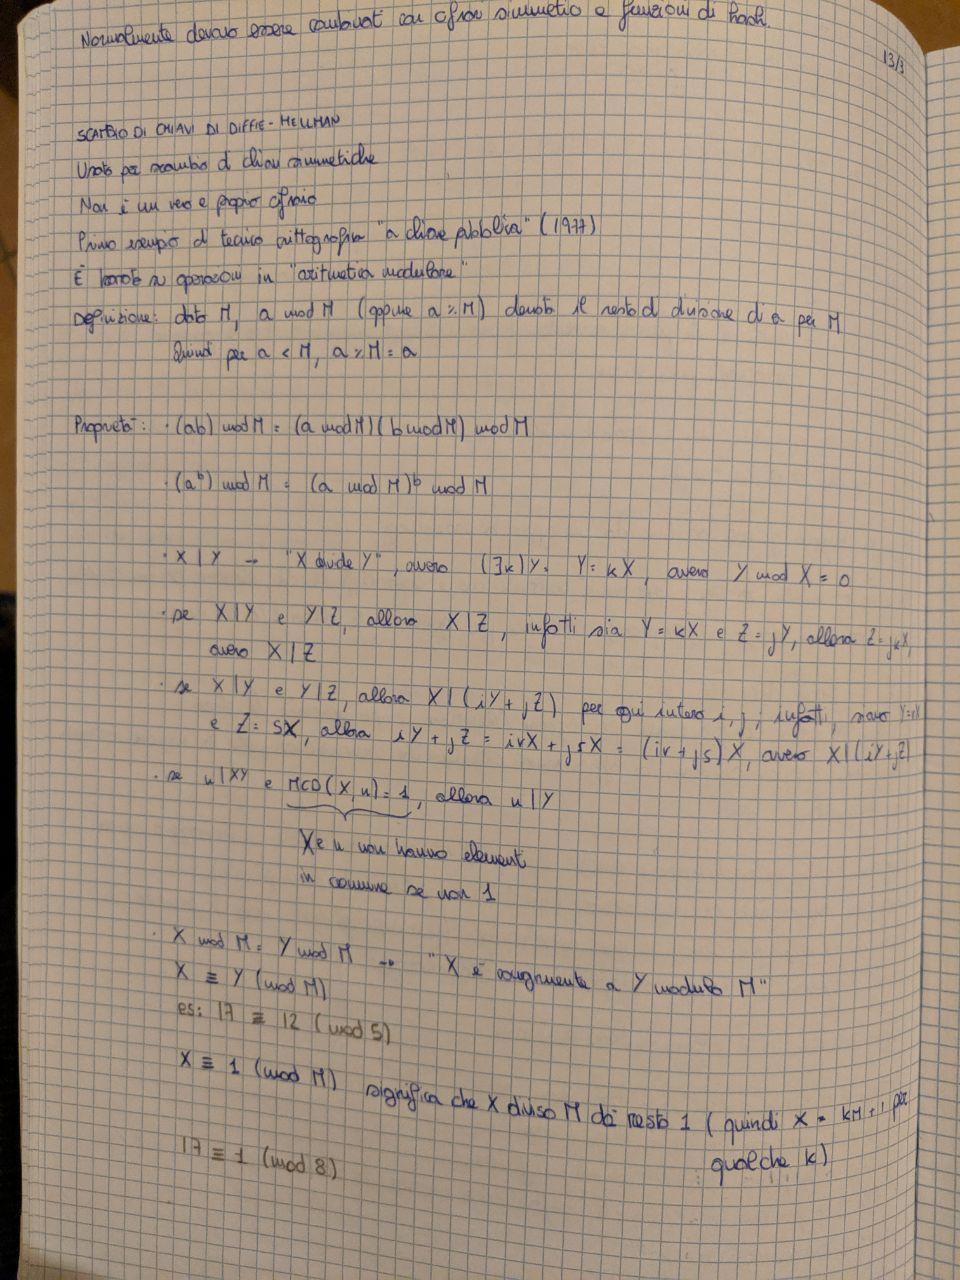 Normalmente devono essere combinati con cifrari simmetrici e funzioni di hash.
13/3
SCAMBIO DI CHIAVI DI DIFFIE-HELLMAN
Usato per scambio di chiavi simmetriche
Non è un vero e proprio cifrario
Primo esempio di tecnica crittografica "a chiave pubblica" (1977)
È basato su operazioni in "aritmetica modulare"
Definizione: dato M, a mod M (oppure a % M) denota il resto di divisione di a per M
Quindi per a < M, a % M = a
Proprietà: · (ab) mod M = (a mod M)(b mod M) mod M
· (a^b) mod M = (a mod M)^b mod M
· X | Y → "X divide Y", ovvero (∃k) Y = kX, ovvero Y mod X = 0
· se X|Y e Y|Z, allora X|Z, infatti sia Y = kX e Z = jY, allora Z = jkX,
ovvero X|Z
· se X|Y e Y|Z, allora X|(iY + jZ) per ogni intero i, j; infatti, siano Y=rX
e Z = sX, allora iY + jZ = irX + jsX = (ir + js) X, ovvero X|(iY+jZ)
· se n|XY e MCD(X,n) = 1, allora n|Y
X e n non hanno elementi
in comune se non 1
· X mod M = Y mod M → "X è congruente a Y modulo M"
X ≡ Y (mod M)
es: 17 ≡ 12 (mod 5)
X ≡ 1 (mod M) significa che X diviso M dà resto 1 (quindi X = kM + 1 per
qualche k)
17 ≡ 1 (mod 8)